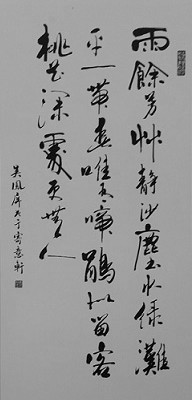 雨餘芳艸静沙塵水绿灘
平一帶春唯有啼鵑似留客
桃花深處更無人
吴鳳屏书于軒